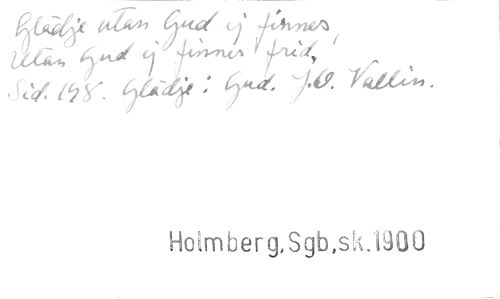 Glädje utan Gud ej finnes,
Utan Gud ej finnes frid.
Sid. 198. Glädje i Gud. J.O. Wallin.
Holmberg,Sgb,sk.1900